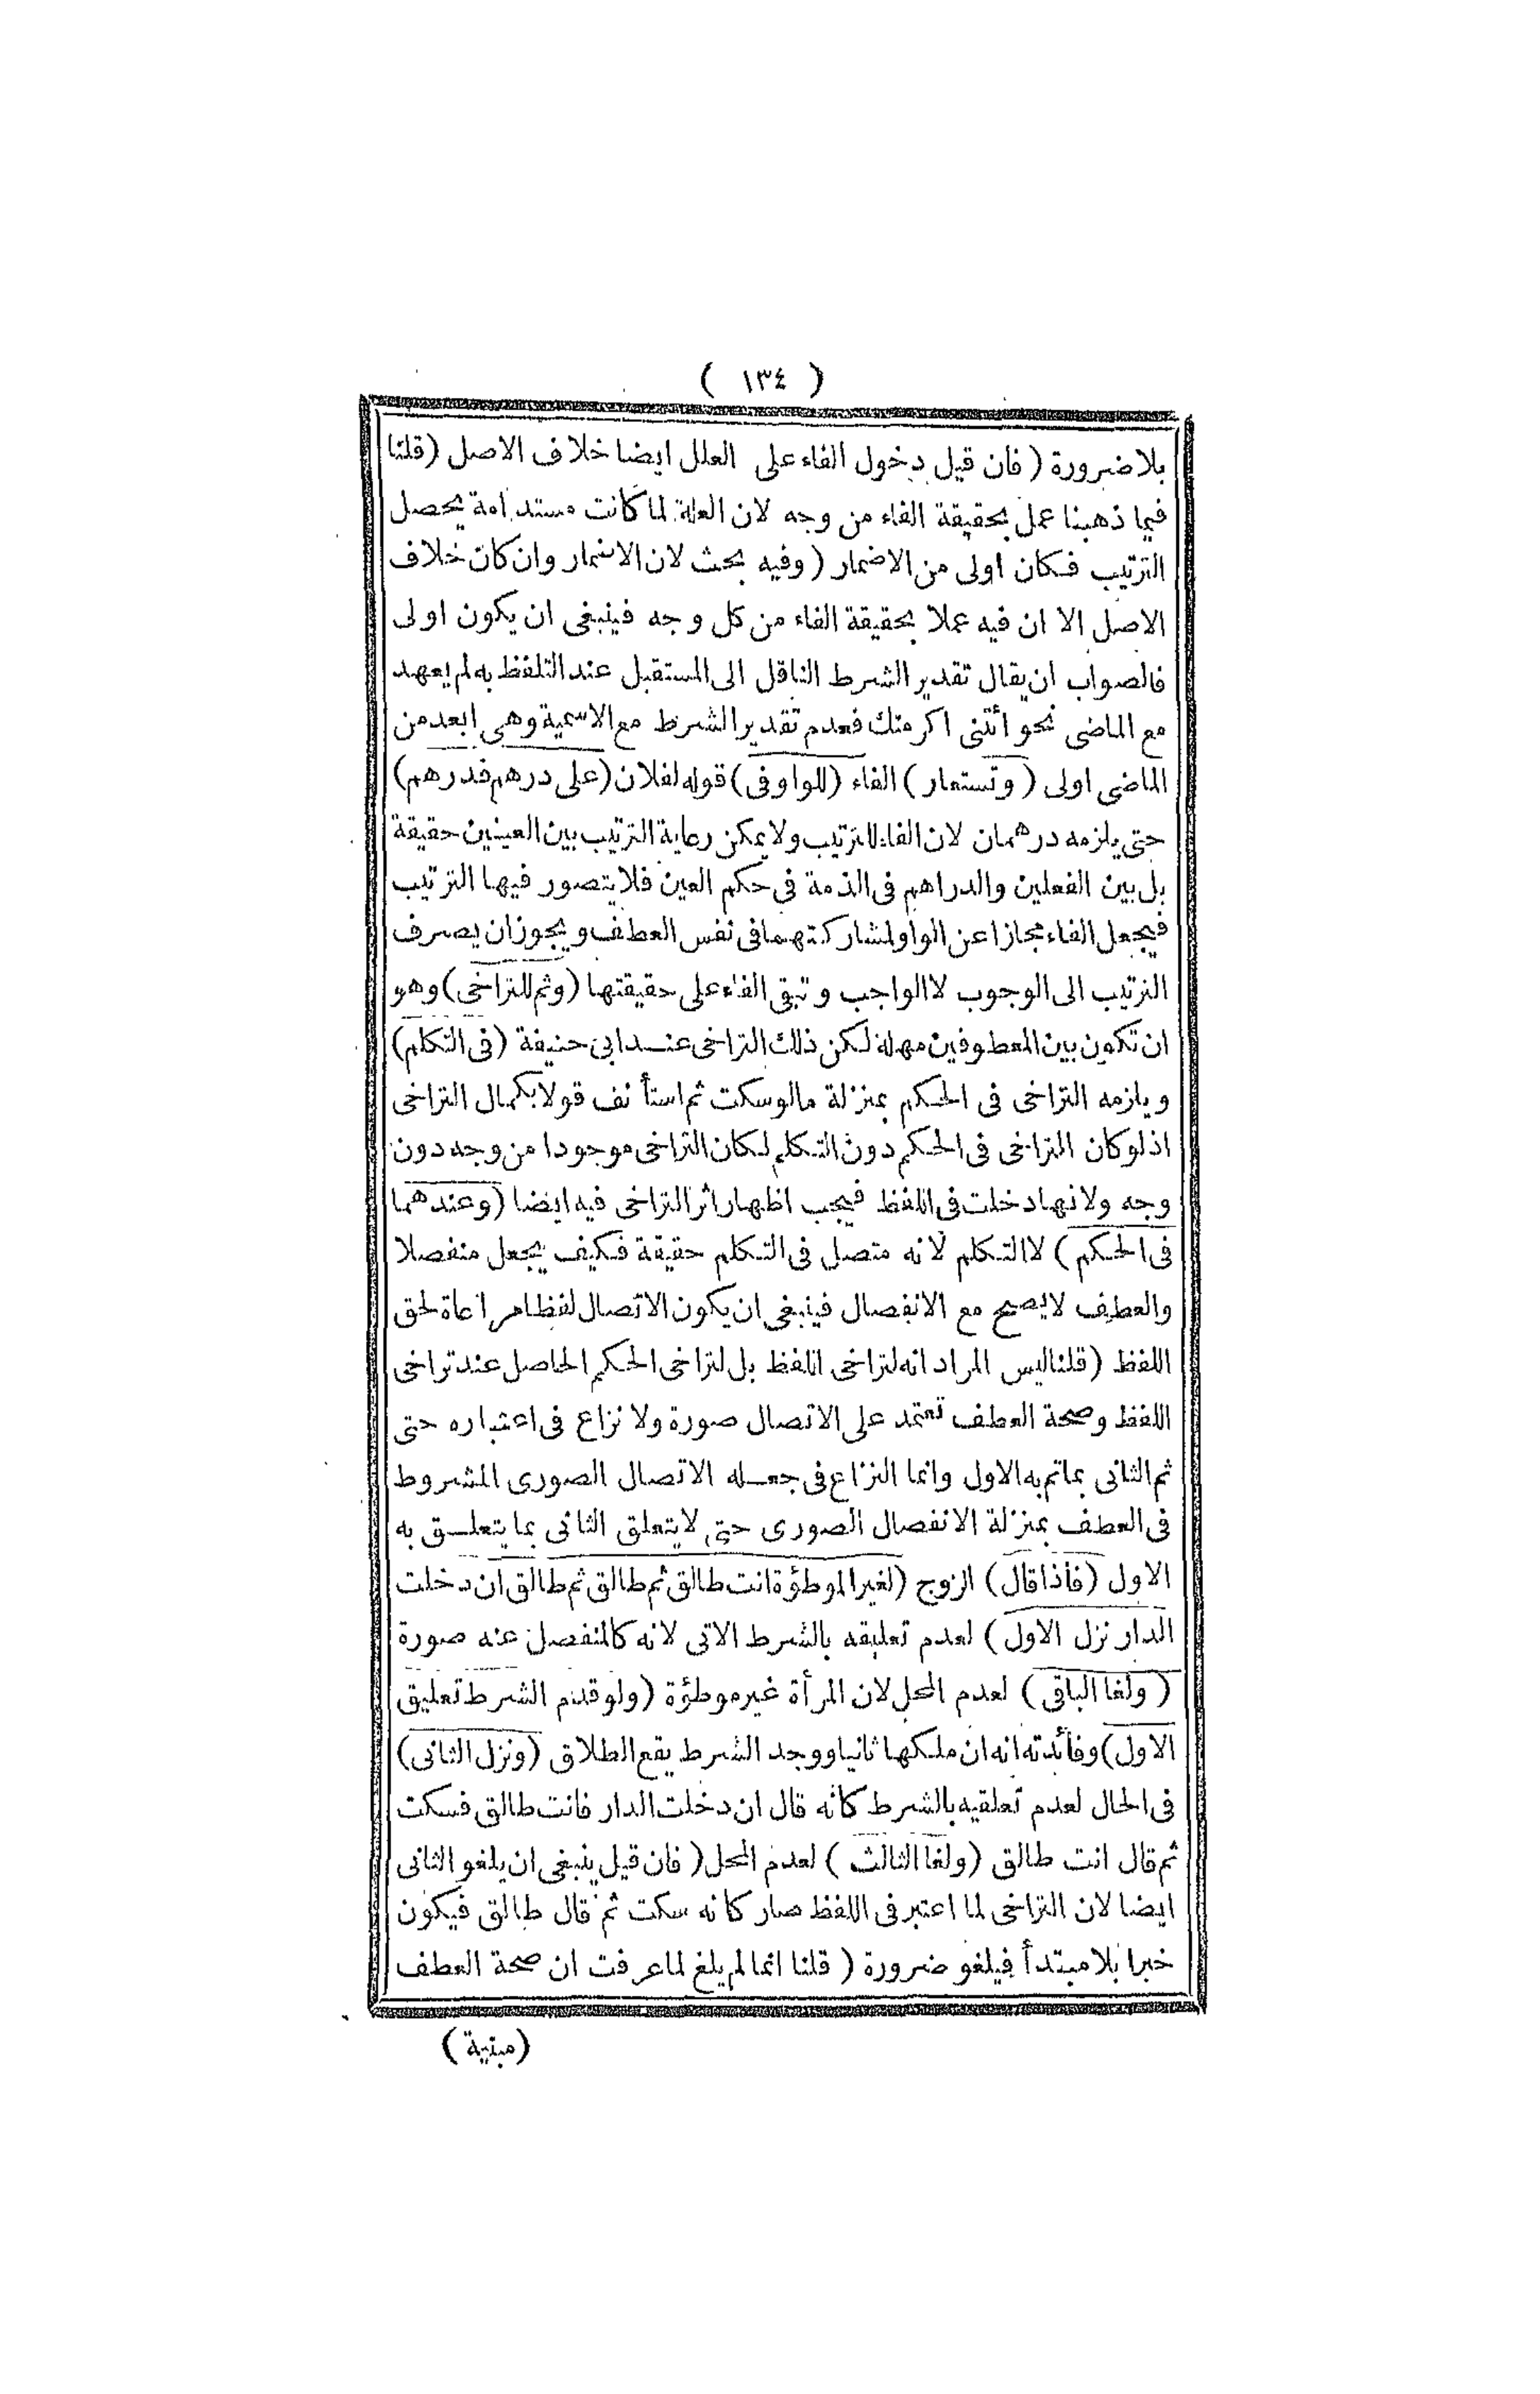 ( ١٣٤ )
بلا ضرورة ( فان قيل دخول الفاء على العلل ايضا خلاف الاصل ( قلنا
فيما ذهبنا عمل بحقيقة الفاء من وجه لان العلة لما كانت مستدامة يحصل
الترتيب فكان اولى من الاضمار ( وفيه بحث لان الاضمار وان كان خلاف
الاصل الا ان فيه عملا بحقيقة الفاء من كل وجه فينبغى ان يكون اولى
فالصواب ان يقال تقدير الشرط الناقل الى المستقبل عند التلفظ به لم يعهد
مع الماضى نحو أتنى اكرمتك فعدم تقدير الشرط مع الاسمية وهى ابعد من
الماضى اولى ( وتستعار ) الفاء ( للواو فى ) قوله لفلان ( على درهم فدرهم )
حتى يلزمه درهمان لان الفاء للترتيب ولا يمكن رعاية الترتيب بين العينين حقيقة
بل بين الفعلين والدراهم فى الذمة فى حكم العين فلا يتصور فيها الترتيب
فيجعل الفاء مجازا عن الواو لمشاركتهما فى نفس العطف ويجوز ان يصرف
الترتيب الى الوجوب لا الواجب وتبقى الفاء على حقيقتها ( وثم للتراخى ) وهو
ان تكون بين المعطوفين مهلة لكن ذلك التراخى عند ابى حنيفة ( فى التكلم )
ويلزمه التراخى فى الحكم بمنزلة ما لو سكت ثم استأنف قولا بكمال التراخى
اذ لو كان التراخى فى الحكم دون التكلم لكان التراخى موجودا من وجه دون
وجه ولانها دخلت فى اللفظ فيجب اظهار اثر التراخى فيه ايضا ( وعندهما
فى الحكم ) لا التكلم لانه متصل فى التكلم حقيقة فكيف يجعل منفصلا
والعطف لا يصح مع الانفصال فينبغى ان يكون الاتصال لفظا مراعاة لحق
اللفظ ( قلنا ليس المراد انه لتراخى اللفظ بل لتراخى الحكم الحاصل عند تراخى
اللفظ وصحة العطف تعتمد على الاتصال صورة ولا نزاع فى اعتباره حتى
ثم الثانى بما تم به الاول وانما النزاع فى جعله الاتصال الصورى المشروط
فى العطف بمنزلة الانفصال الصورى حتى لا يتعلق الثانى بما يتعلق به
الاول ( فاذا قال ) الزوج ( لغير الموطؤة انت طالق ثم طالق ثم طالق ان دخلت
الدار نزل الاول ) لعدم تعليقه بالشرط الاتى لانه كالمنفصل عنه صورة
( ولغا الباقى ) لعدم المحل لان المرأة غير موطؤة ( ولو قدم الشرط تعليق
الاول ) وفائدته انه ان ملكها ثانيا ووجد الشرط يقع الطلاق ( ونزل الثانى )
فى الحال لعدم تعلقيه بالشرط كانه قال ان دخلت الدار فانت طالق فسكت
ثم قال انت طالق ( ولغا الثالث ) لعدم المحل ( فان قيل ينبغى ان يلغو الثانى
ايضا لان التراخى لما اعتبر فى اللفظ صار كانه سكت ثم قال طالق فيكون
خبرا بلا مبتدأ فيلغو ضرورة ( قلنا انما لم يلغ لما عرفت ان صحة العطف
( مبنية )